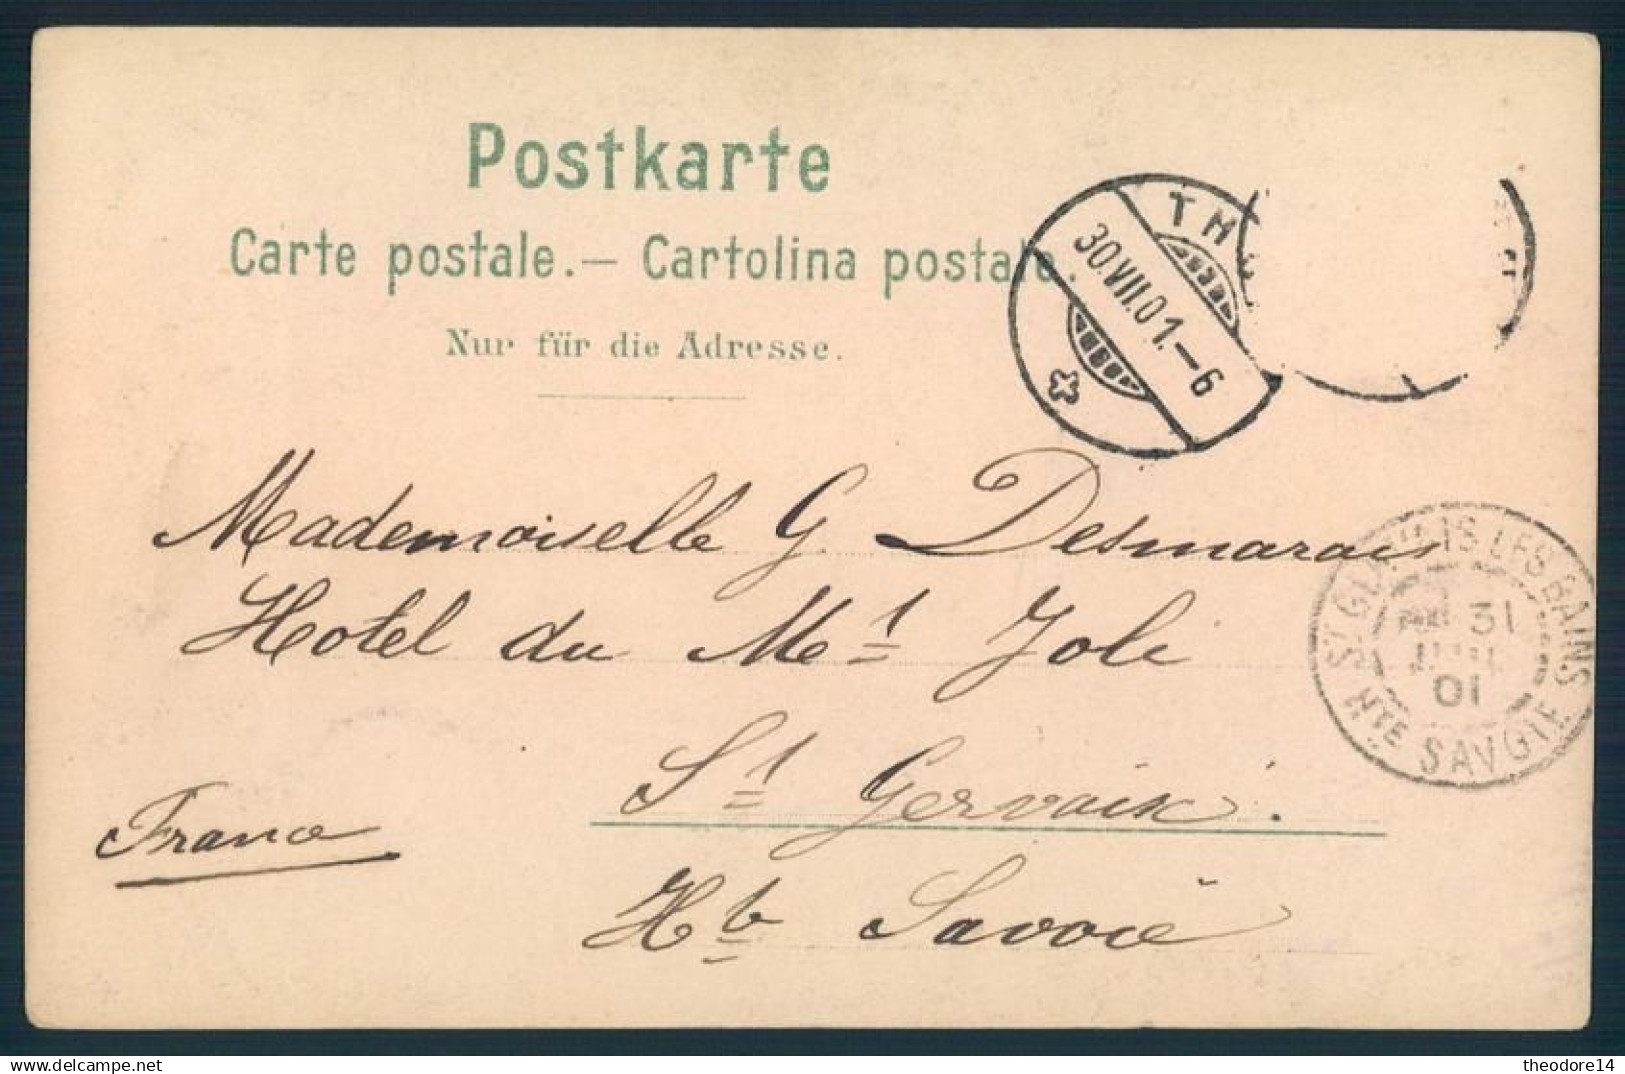 Postkarte
Carte postale. — Cartolina postale.
Nur für die Adresse.
TH
30.VII.01.—6
Mademoiselle G. Desmarais
Hotel du Mt Joli
St Gervaix.
Hte Savoie
France
ST GERVAIS LES BAINS
31
01
HTE SAVOIE
theodore14